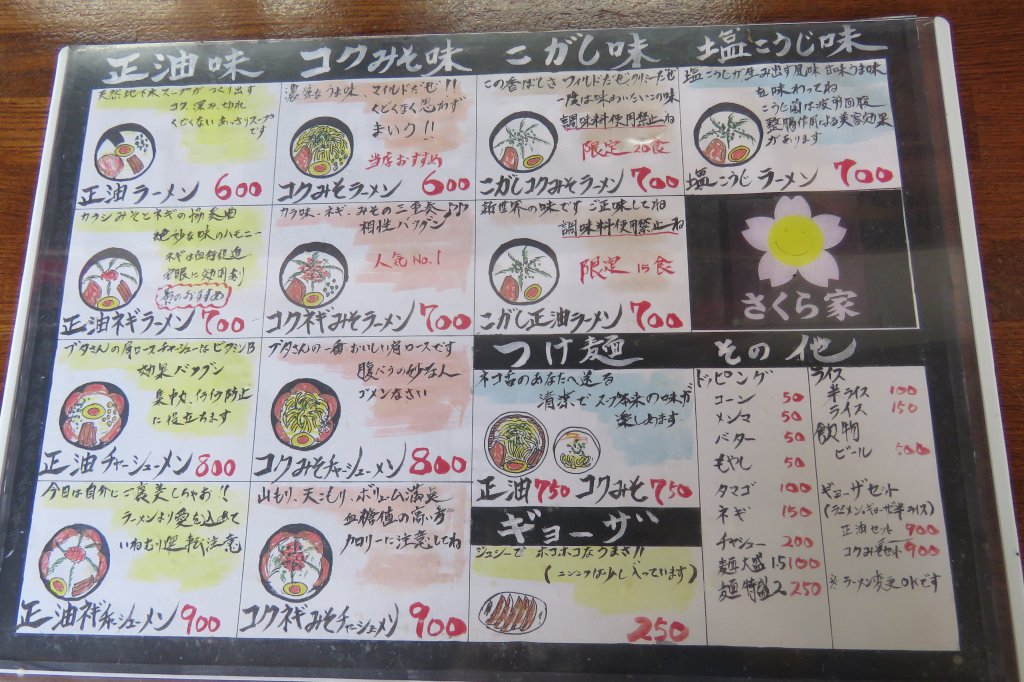 正油味
天然地下水スープがつくり出す
コク、深み、切れ
くどくない あっさりスープ
です
正油ラーメン 600
カラシみそとネギの協奏曲
絶妙な味のハーモニー
ネギは血行促進
効用剤
おすすめ
正油ネギラーメン 700
ブタさんの肩ロースチャーシューはビタミンB
効果バツグン
集中力、イライラ防止
に役立ちます
正油チャーシューメン 800
今日は自分にご褒美しちゃお!!
ラーメンより愛を込めて
いねむり運転注意
正油ネギチャーシューメン 900
コクみそ味
濃厚なうま味、マイルドだぜ!!
くどくなく思わず
まいう!!
当店おすすめ
コクみそラーメン 600
カラ味、ネギ、みその三重奏♪♪
相性バツグン
人気No.1
コクネギみそラーメン 700
ブタさんの一番おいしい肩ロースです
腹ペコの妙な人
ゴメンなさい
コクみそチャーシューメン 800
山もり、天こもり、ボリューム満点
血糖値の高い方
カロリーに注意してね
コクネギみそチャーシューメン 900
こがし味
この香ばしさ ワイルドだぜ クリーミーだぜ
一度は味わいたいこの味
調味料使用禁止ね
限定20食
こがしコクみそラーメン 700
新世界の味です ご正味してね
調味料使用禁止ね
限定15食
こがし正油ラーメン 700
塩こうじ味
塩こうじが生み出す風味 甘味うま味
を味わってね
こうじ菌は疲労回復
整腸作用による美容効果
があります
塩こうじラーメン 700
さくら家
つけ麺
ネコ舌のあなたへ送る
清茶でスープ本来の味が
楽しめます
正油 750 コクみそ 750
ギョーザ
ジュシーで ホコホコなうまさ!!
(ニンニクは少し入っています)
250
その他
トッピング
コーン 50
メンマ 50
バター 50
もやし 50
タマゴ 100
ネギ 150
チャシュー 200
麺大盛1.5 100
麺特盛2 250
ライス
半ライス 100
ライス 150
飲物
ビール 500
ギョーザセット
(ラーメン・ギョーザ・半ライス)
正油セット 900
コクみそセット 900
※ラーメン変更OKです